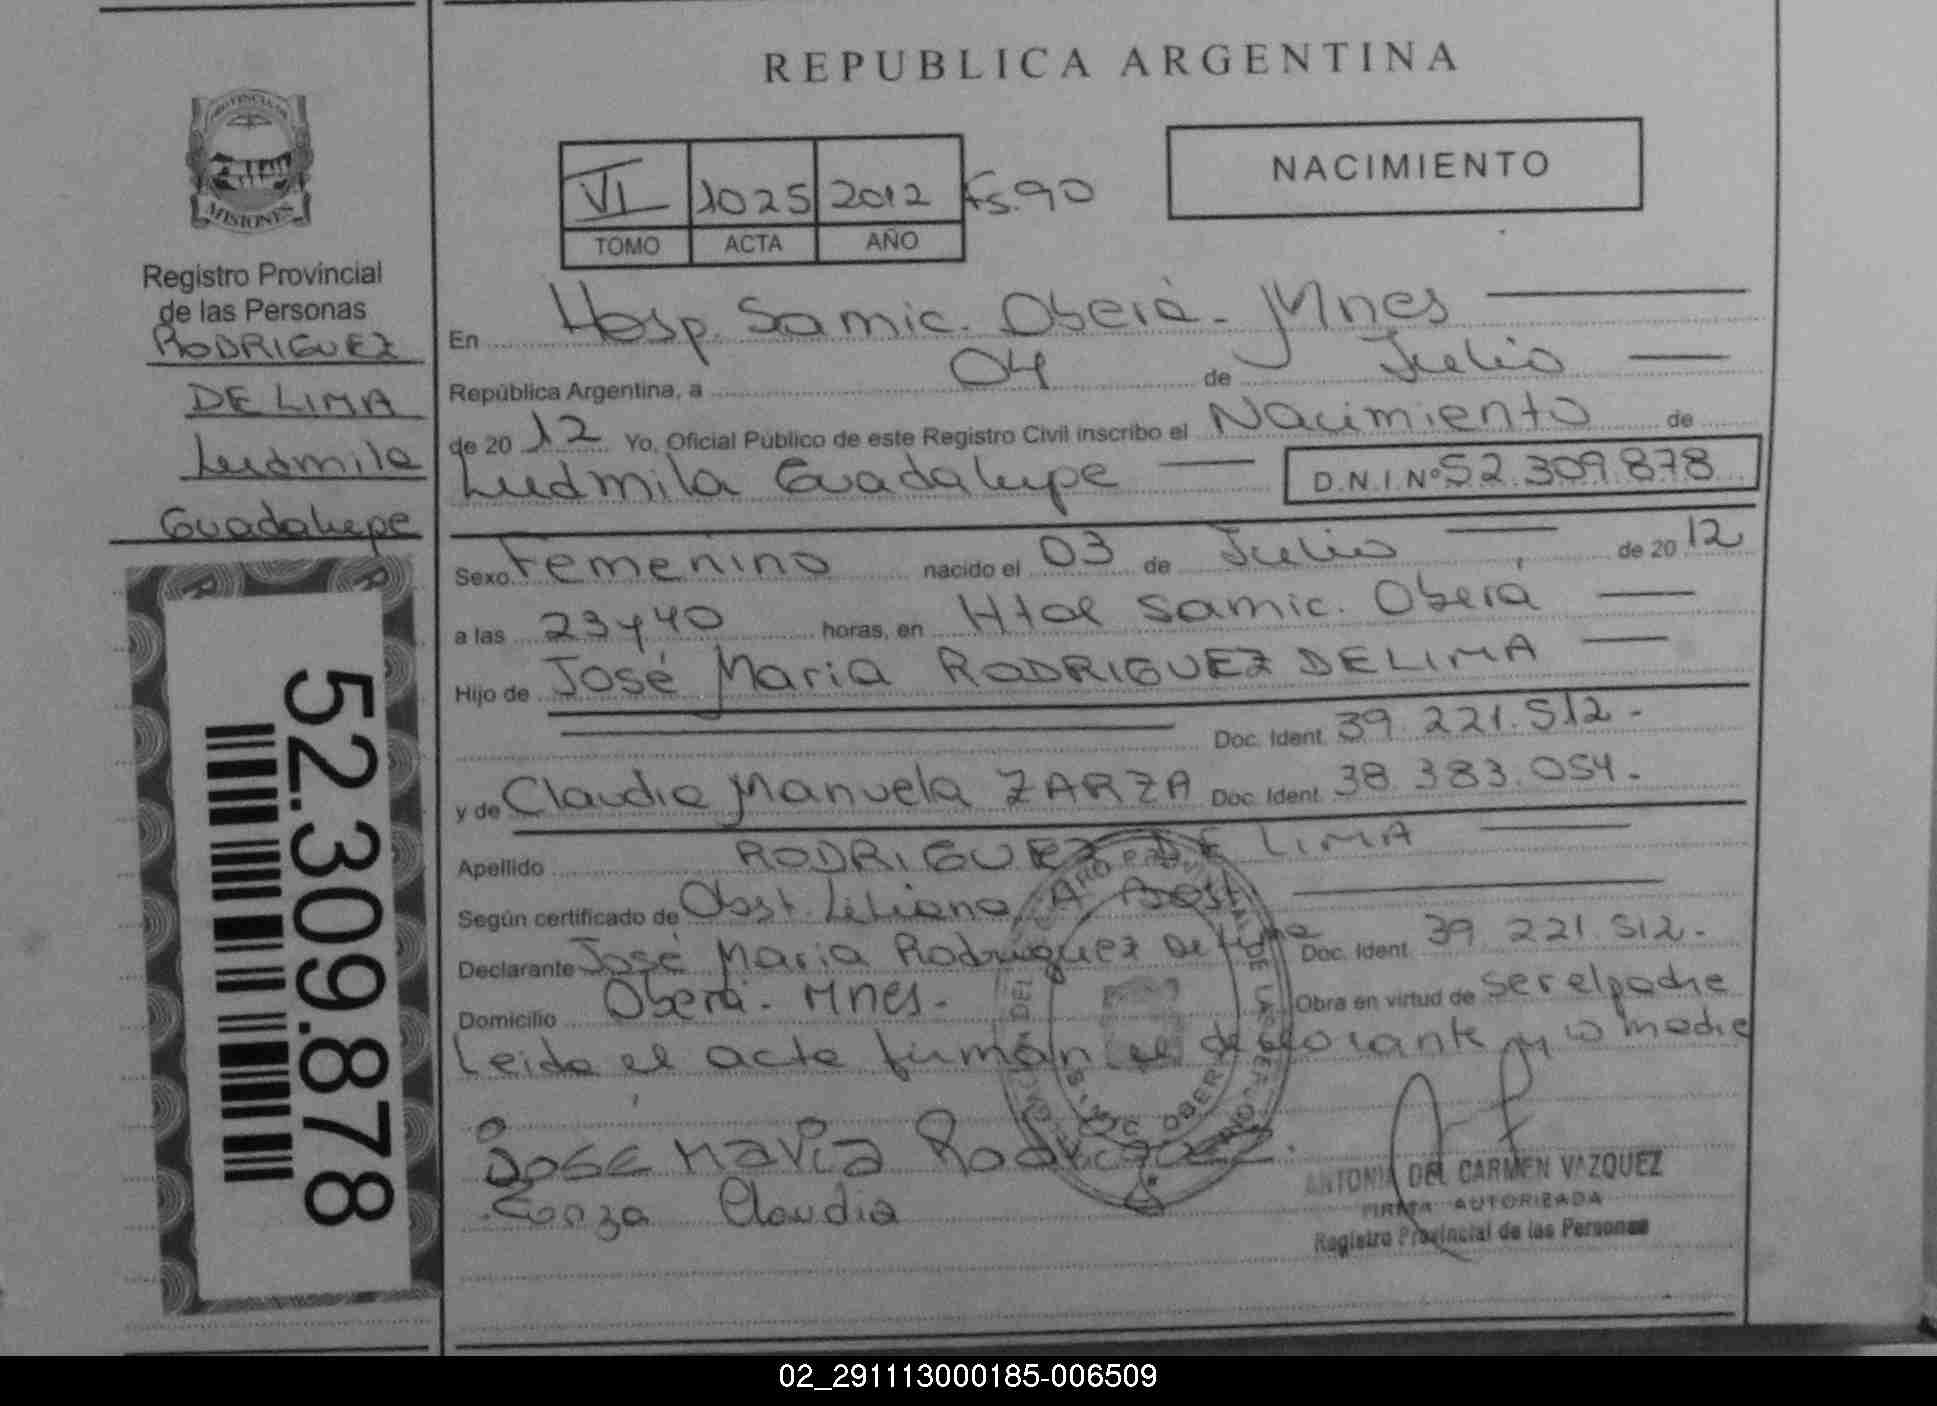 REPUBLICA ARGENTINA
NACIMIENTO
VI 1025 2012 Fs.90
TOMO ACTA AÑO
PROVINCIA DE
MISIONES
Registro Provincial
de las Personas
RODRIGUEZ
DE LIMA
Ludmila
Guadalupe
52.309.878
En Hosp. Samic. Oberá - Mnes
República Argentina, a 04 de Julio
de 2012 Yo, Oficial Público de este Registro Civil inscribo el Nacimiento de
Ludmila Guadalupe D.N.I.Nº 52.309.878
Sexo Femenino nacido el 03 de Julio de 2012
a las 23y40 horas, en Htal Samic. Oberá
Hijo de José Maria RODRIGUEZ DE LIMA
Doc. Ident. 39.221.512.-
y de Claudia Manuela ZARZA Doc. Ident. 38.383.054.-
Apellido RODRIGUEZ DE LIMA
Según certificado de Obst. Liliana A.
Declarante José Maria Rodriguez De Lima Doc. Ident. 39.221.512.-
Domicilio Oberá - Mnes - Obra en virtud de ser el padre
Leida el acta firman el declarante y la madre
José maria Rodriguez.
Zarza Claudia
ANTONIA DEL CARMEN VAZQUEZ
FIRMA AUTORIZADA
Registro Provincial de las Personas
02_291113000185-006509